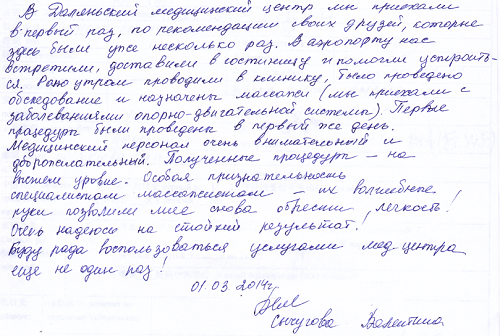 В Даляньский медицинский центр мы приехали
в первый раз, по рекомендации своих друзей, которые
здесь были уже несколько раз. В аэропорту нас
встретили, доставили в гостиницу и помогли устроить-
ся. Рано утром проводили в клинику, было проведено
обследование и назначены массажи (мы приехали с
заболеваниями опорно-двигательной системы). Первые
процедуры были проведены в первый же день.
Медицинский персонал очень внимательный и
доброжелательный. Полученные процедуры – на
высшем уровне. Особая признательность
специалистам массажистам – их волшебные
руки позволили мне снова обрести легкость!
Очень надеюсь на стойкий результат!
Буду рада воспользоваться услугами мед. центра
еще не один раз!
01.03.2014г.
Сычугова Валентина